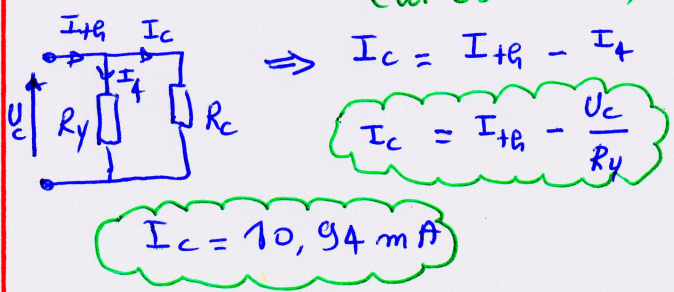 I_th I_c
I_4
U_c R_y R_c
⇒ I_c = I_th - I_4
I_c = I_th - U_c/R_y
I_c = 10,94 mA